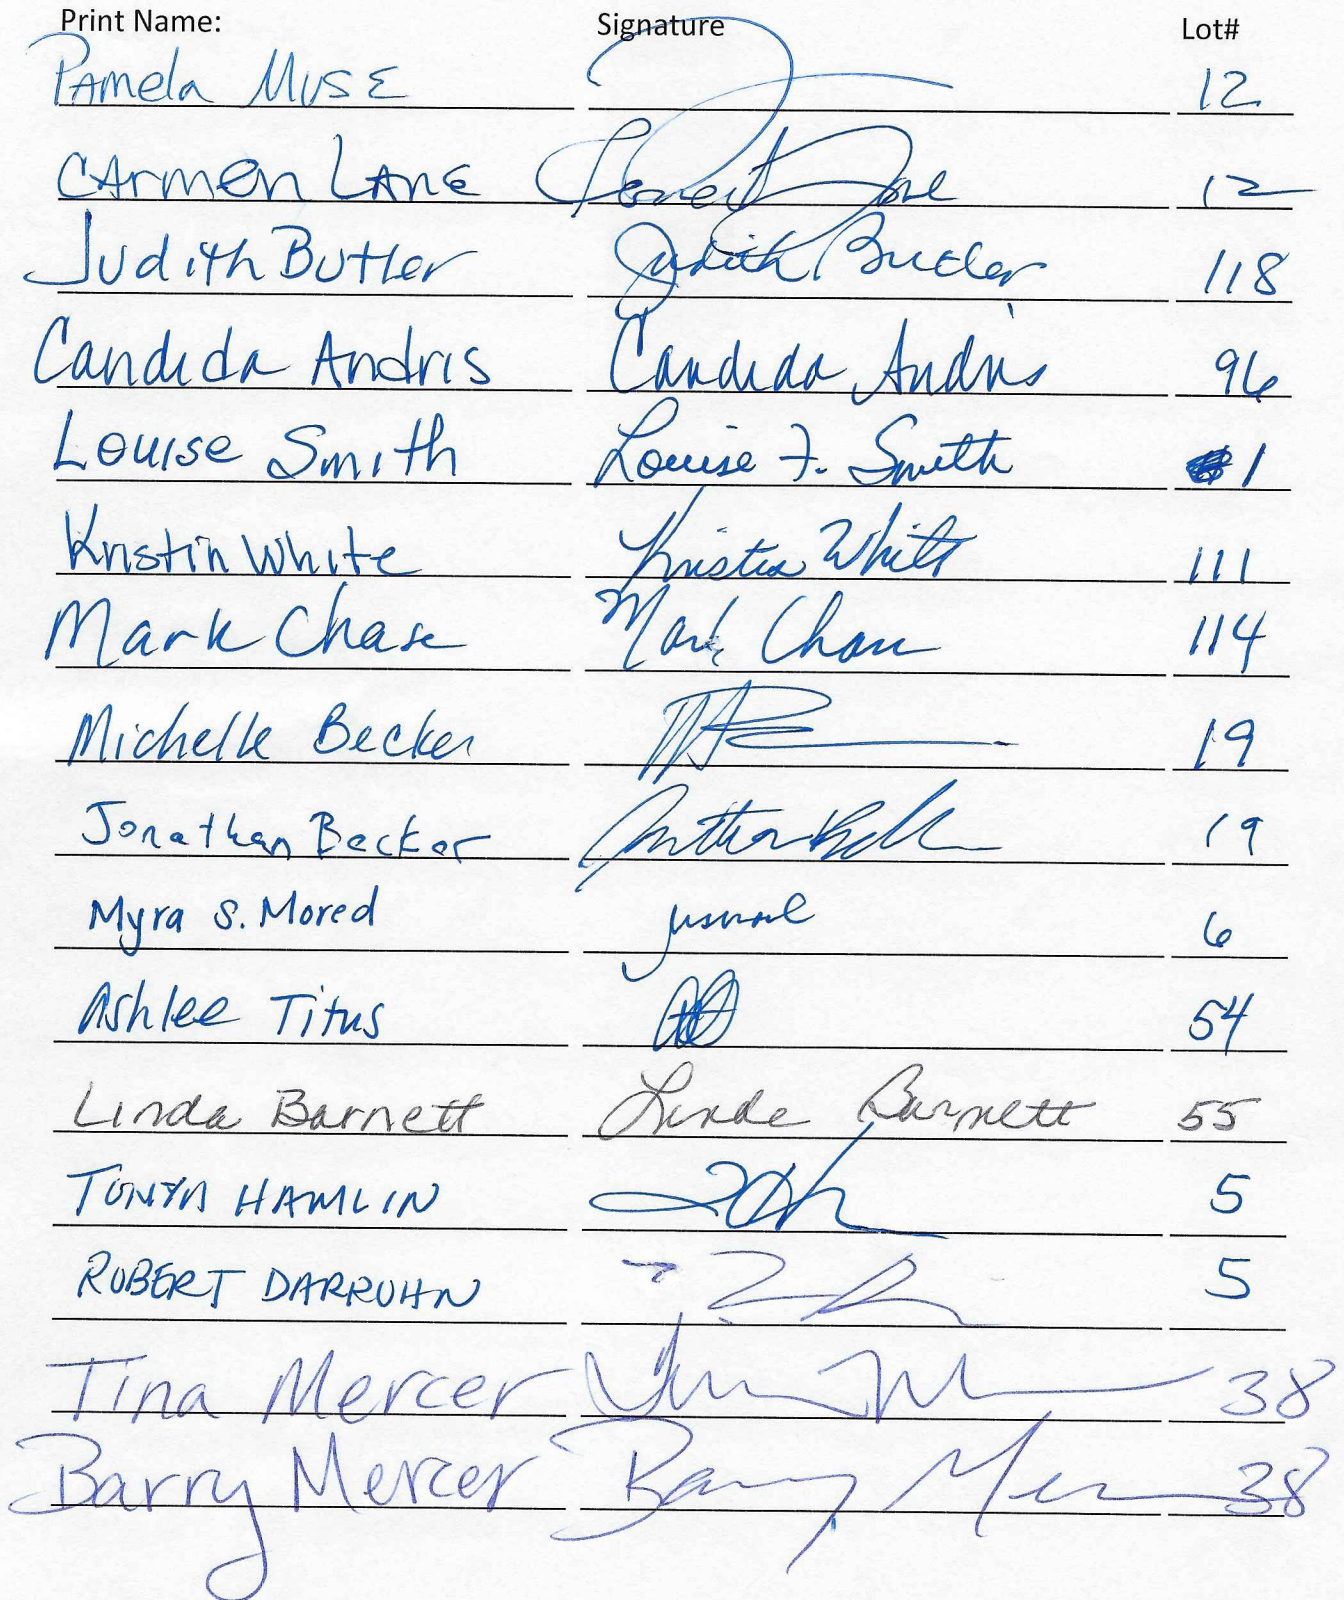 Print Name: Signature Lot#
PAMela MUSE 12
CArmen LANE 12
Judith Butler Judith Butler 118
Candida Andris Candida Andris 96
Louise Smith Louise F. Smith 1
Kristin White Kristin White 111
Mark Chase Mark Chase 114
Michelle Becker 19
Jonathan Becker 19
Myra S. Mored 6
Ashlee Titus 54
Linda Barnett Linda Barnett 55
TONYA HAMLIN 5
ROBERT DARRUHN 5
Tina Mercer 38
Barry Mercer Barry Mercer 38